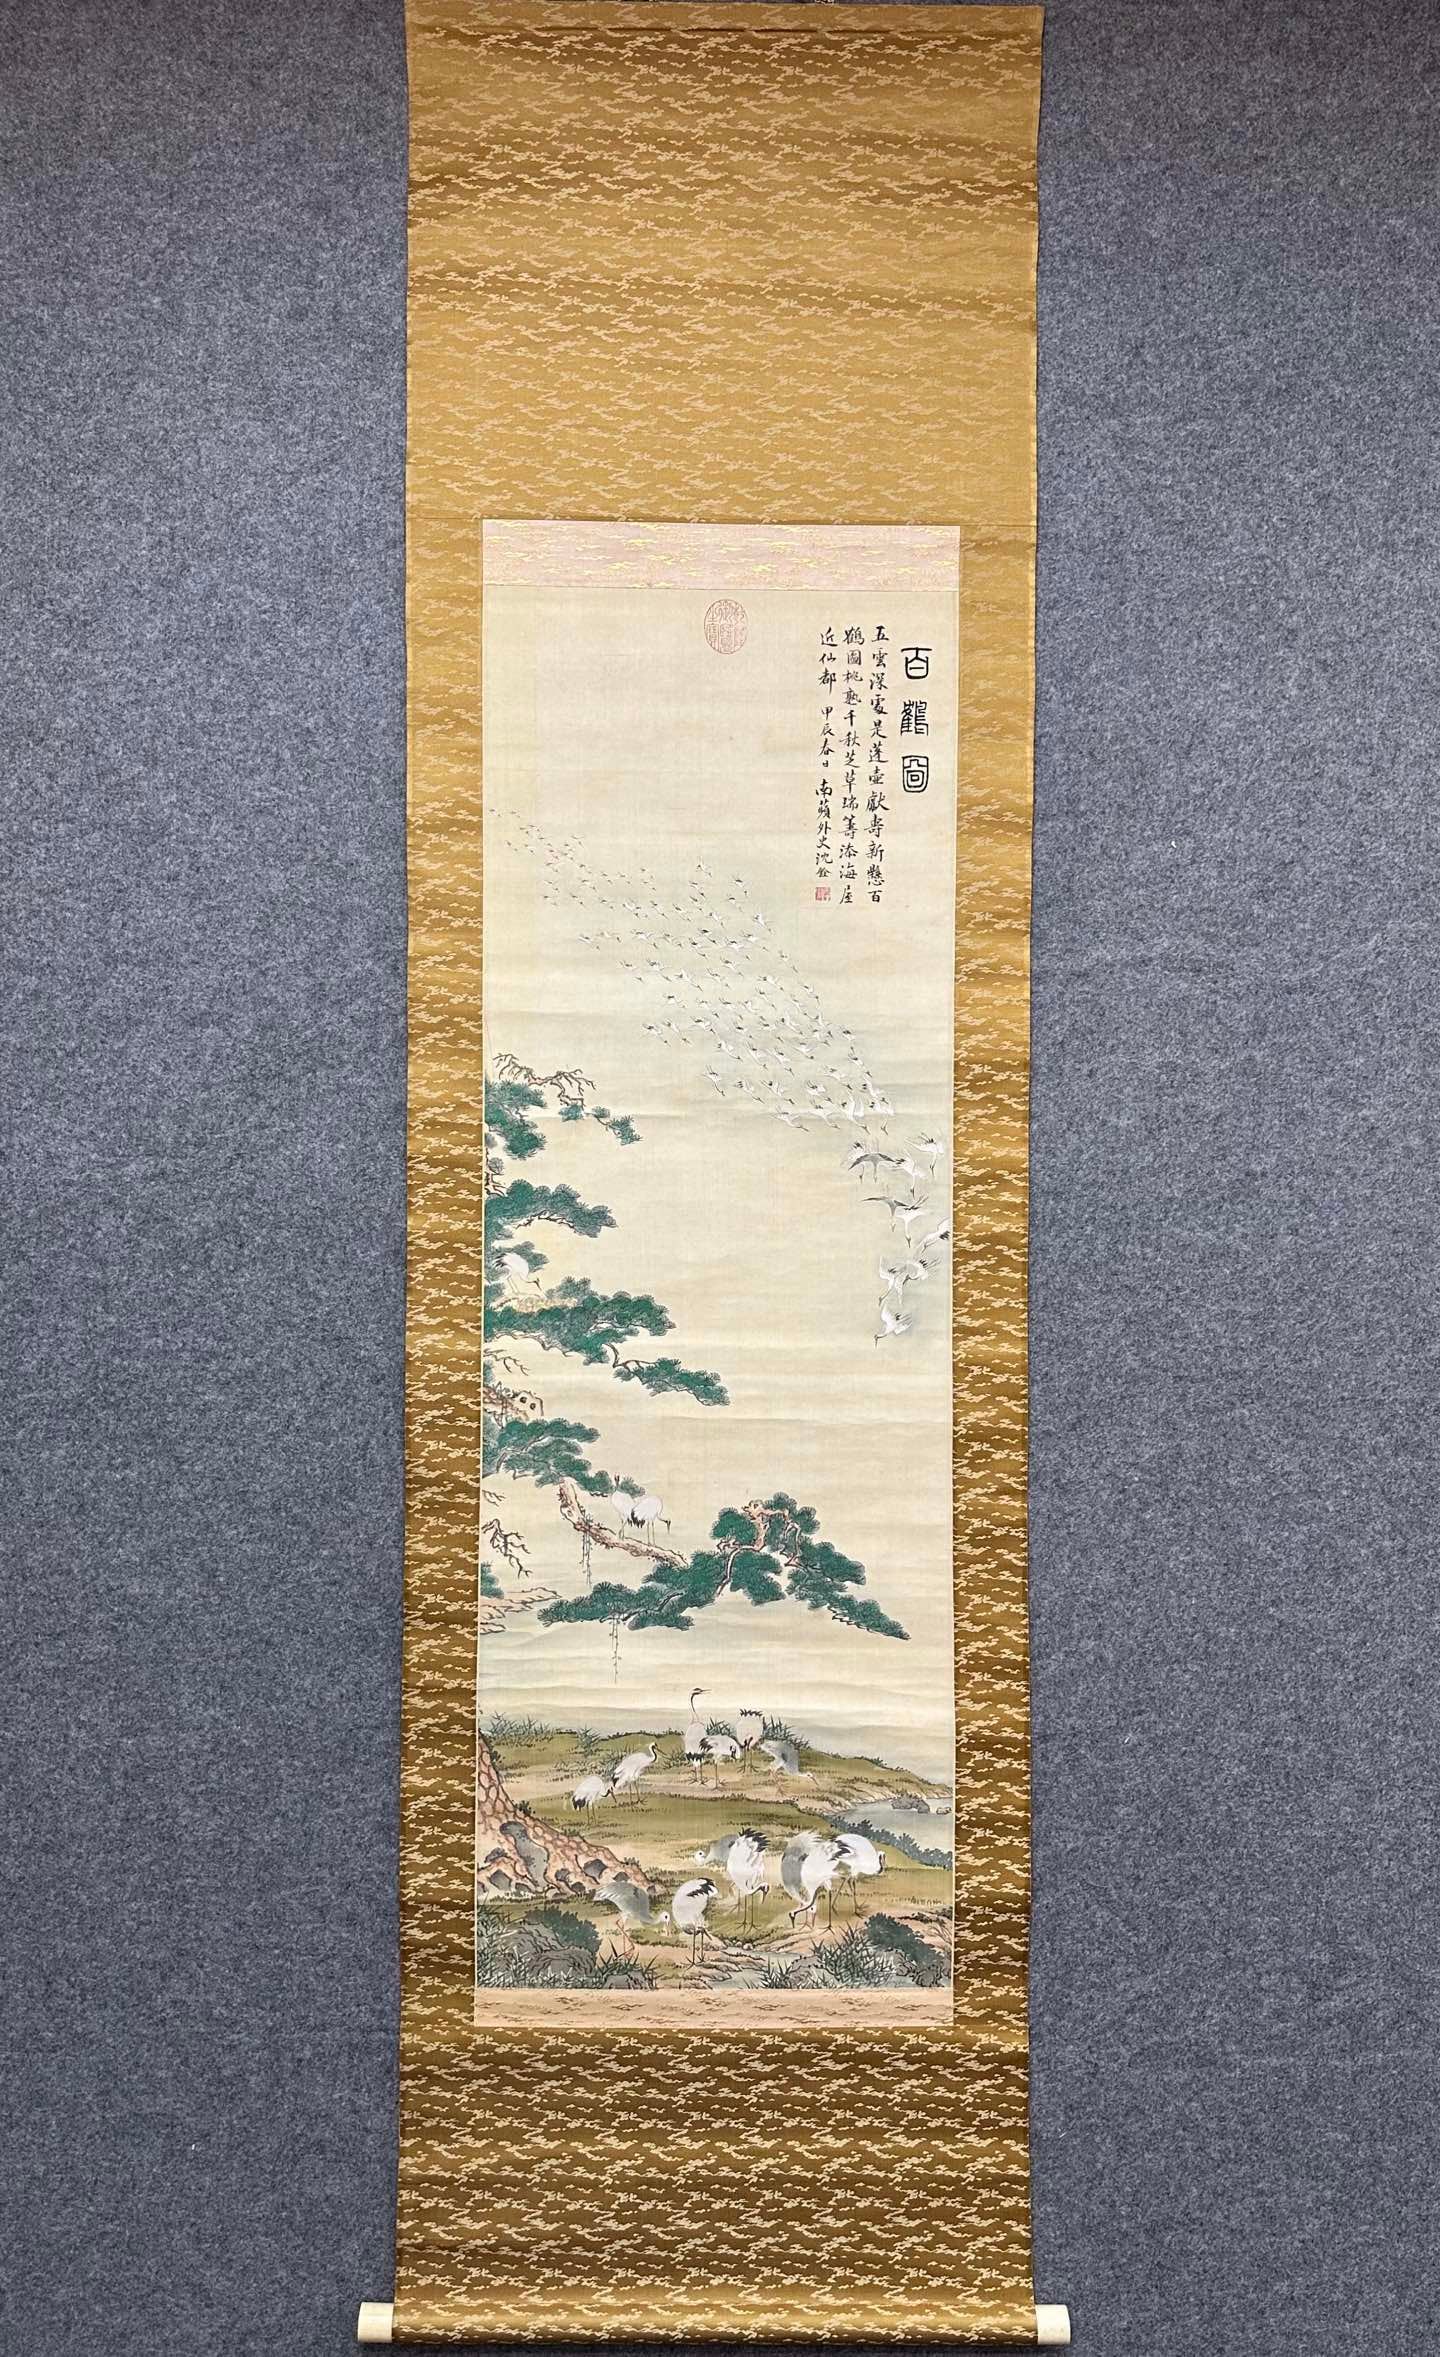 百鶴圖
五雲深處是蓬壺獻壽新懸百
鶴圖桃熟千秋芝草瑞籌添海屋
近仙都 甲辰春日 南蘋外史沈銓